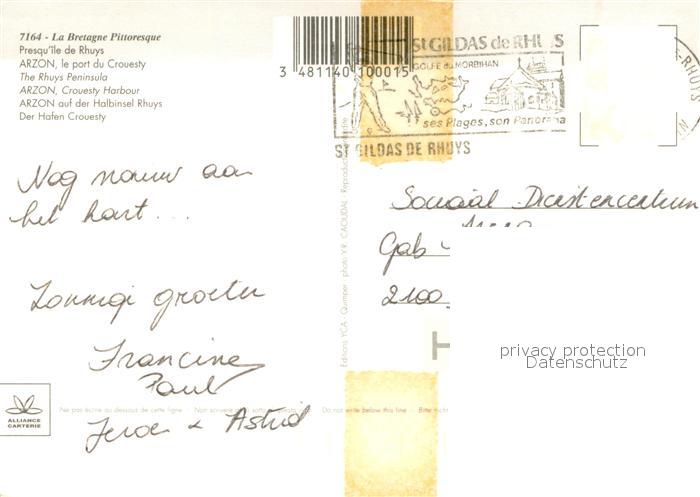 7164 - La Bretagne Pittoresque
Presqu'île de Rhuys
ARZON, le port du Crouesty
The Rhuys Peninsula
ARZON, Crouesty Harbour
ARZON auf der Halbinsel Rhuys
Der Hafen Crouesty
3 481140 100015
St GILDAS de RHUYS
GOLFE du MORBIHAN
ses Plages, son Panorama
ST GILDAS DE RHUYS
E-RHUYS
Nog nauw aan
het hart...
Zonnige groeten
Francine
Paul
Jeroen & Astrid
Sociaal Dienstencentrum
Gab
2100
Editions YCA Quimper photo Y.R. CAOUDAL Reproduction interdite
privacy protection
Datenschutz
ALLIANCE
CARTERIE
Ne pas écrire au dessous de cette ligne Non scrivere sotto questa Do not write below this line Bitte nicht